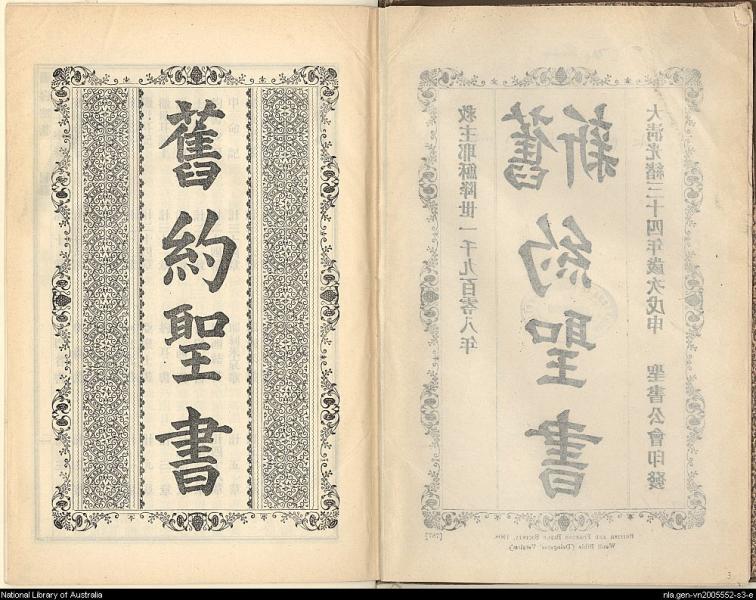 舊約聖書
救主耶穌降世一千九百零八年
舊新
約聖書
大清光緒三十四年歲次戊申 聖書公會印發
BRITISH AND FOREIGN BIBLE SOCIETY, 1908.
Wenli Bible (Delegates' Version).
National Library of Australia
nla.gen-vn2005552-s3-e